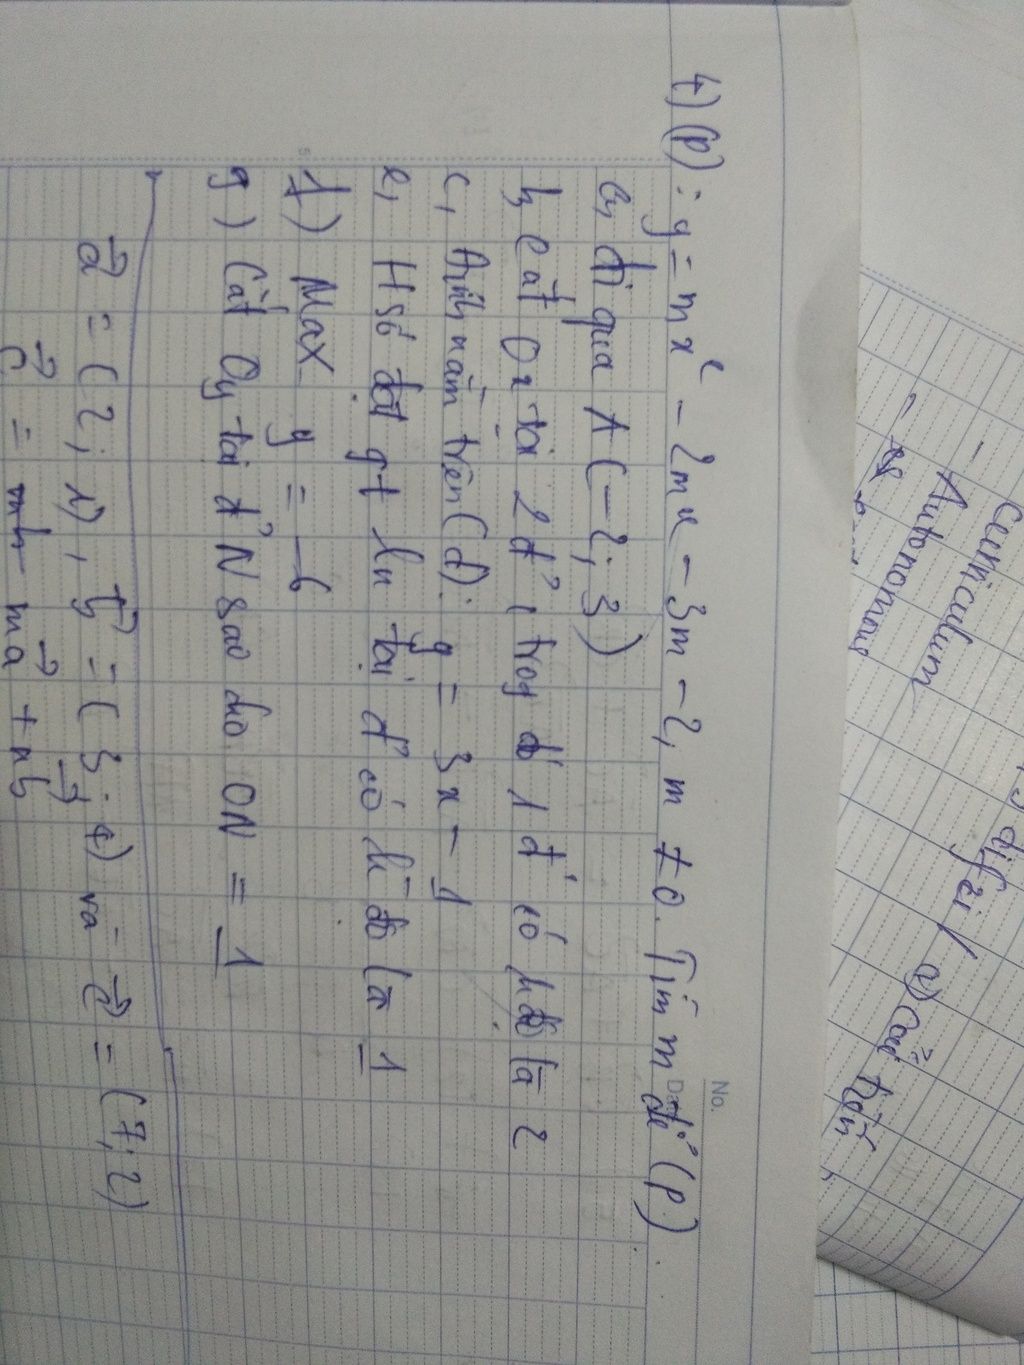 4) (P): y = mx² - 2mx - 3m - 2, m ≠ 0. Tìm m để (P)
a, Đi qua A (-2; 3)
b, Cắt Ox tại 2 đ', trog đó 1 đ' có hđộ là 2
c, Đỉnh nằm trên (d): y = 3x - 1
e, Hsố đạt gt ln tại đ' có h độ là 1
f) Max y = -6
g) Cắt Oy tại đ' N sao cho ON = 1
a⃗ = (2; 1), b⃗ = (3; 4) và c⃗ = (7; 2)
c⃗ = ma⃗ + nb⃗
No.
- Curriculum
- Autonomous